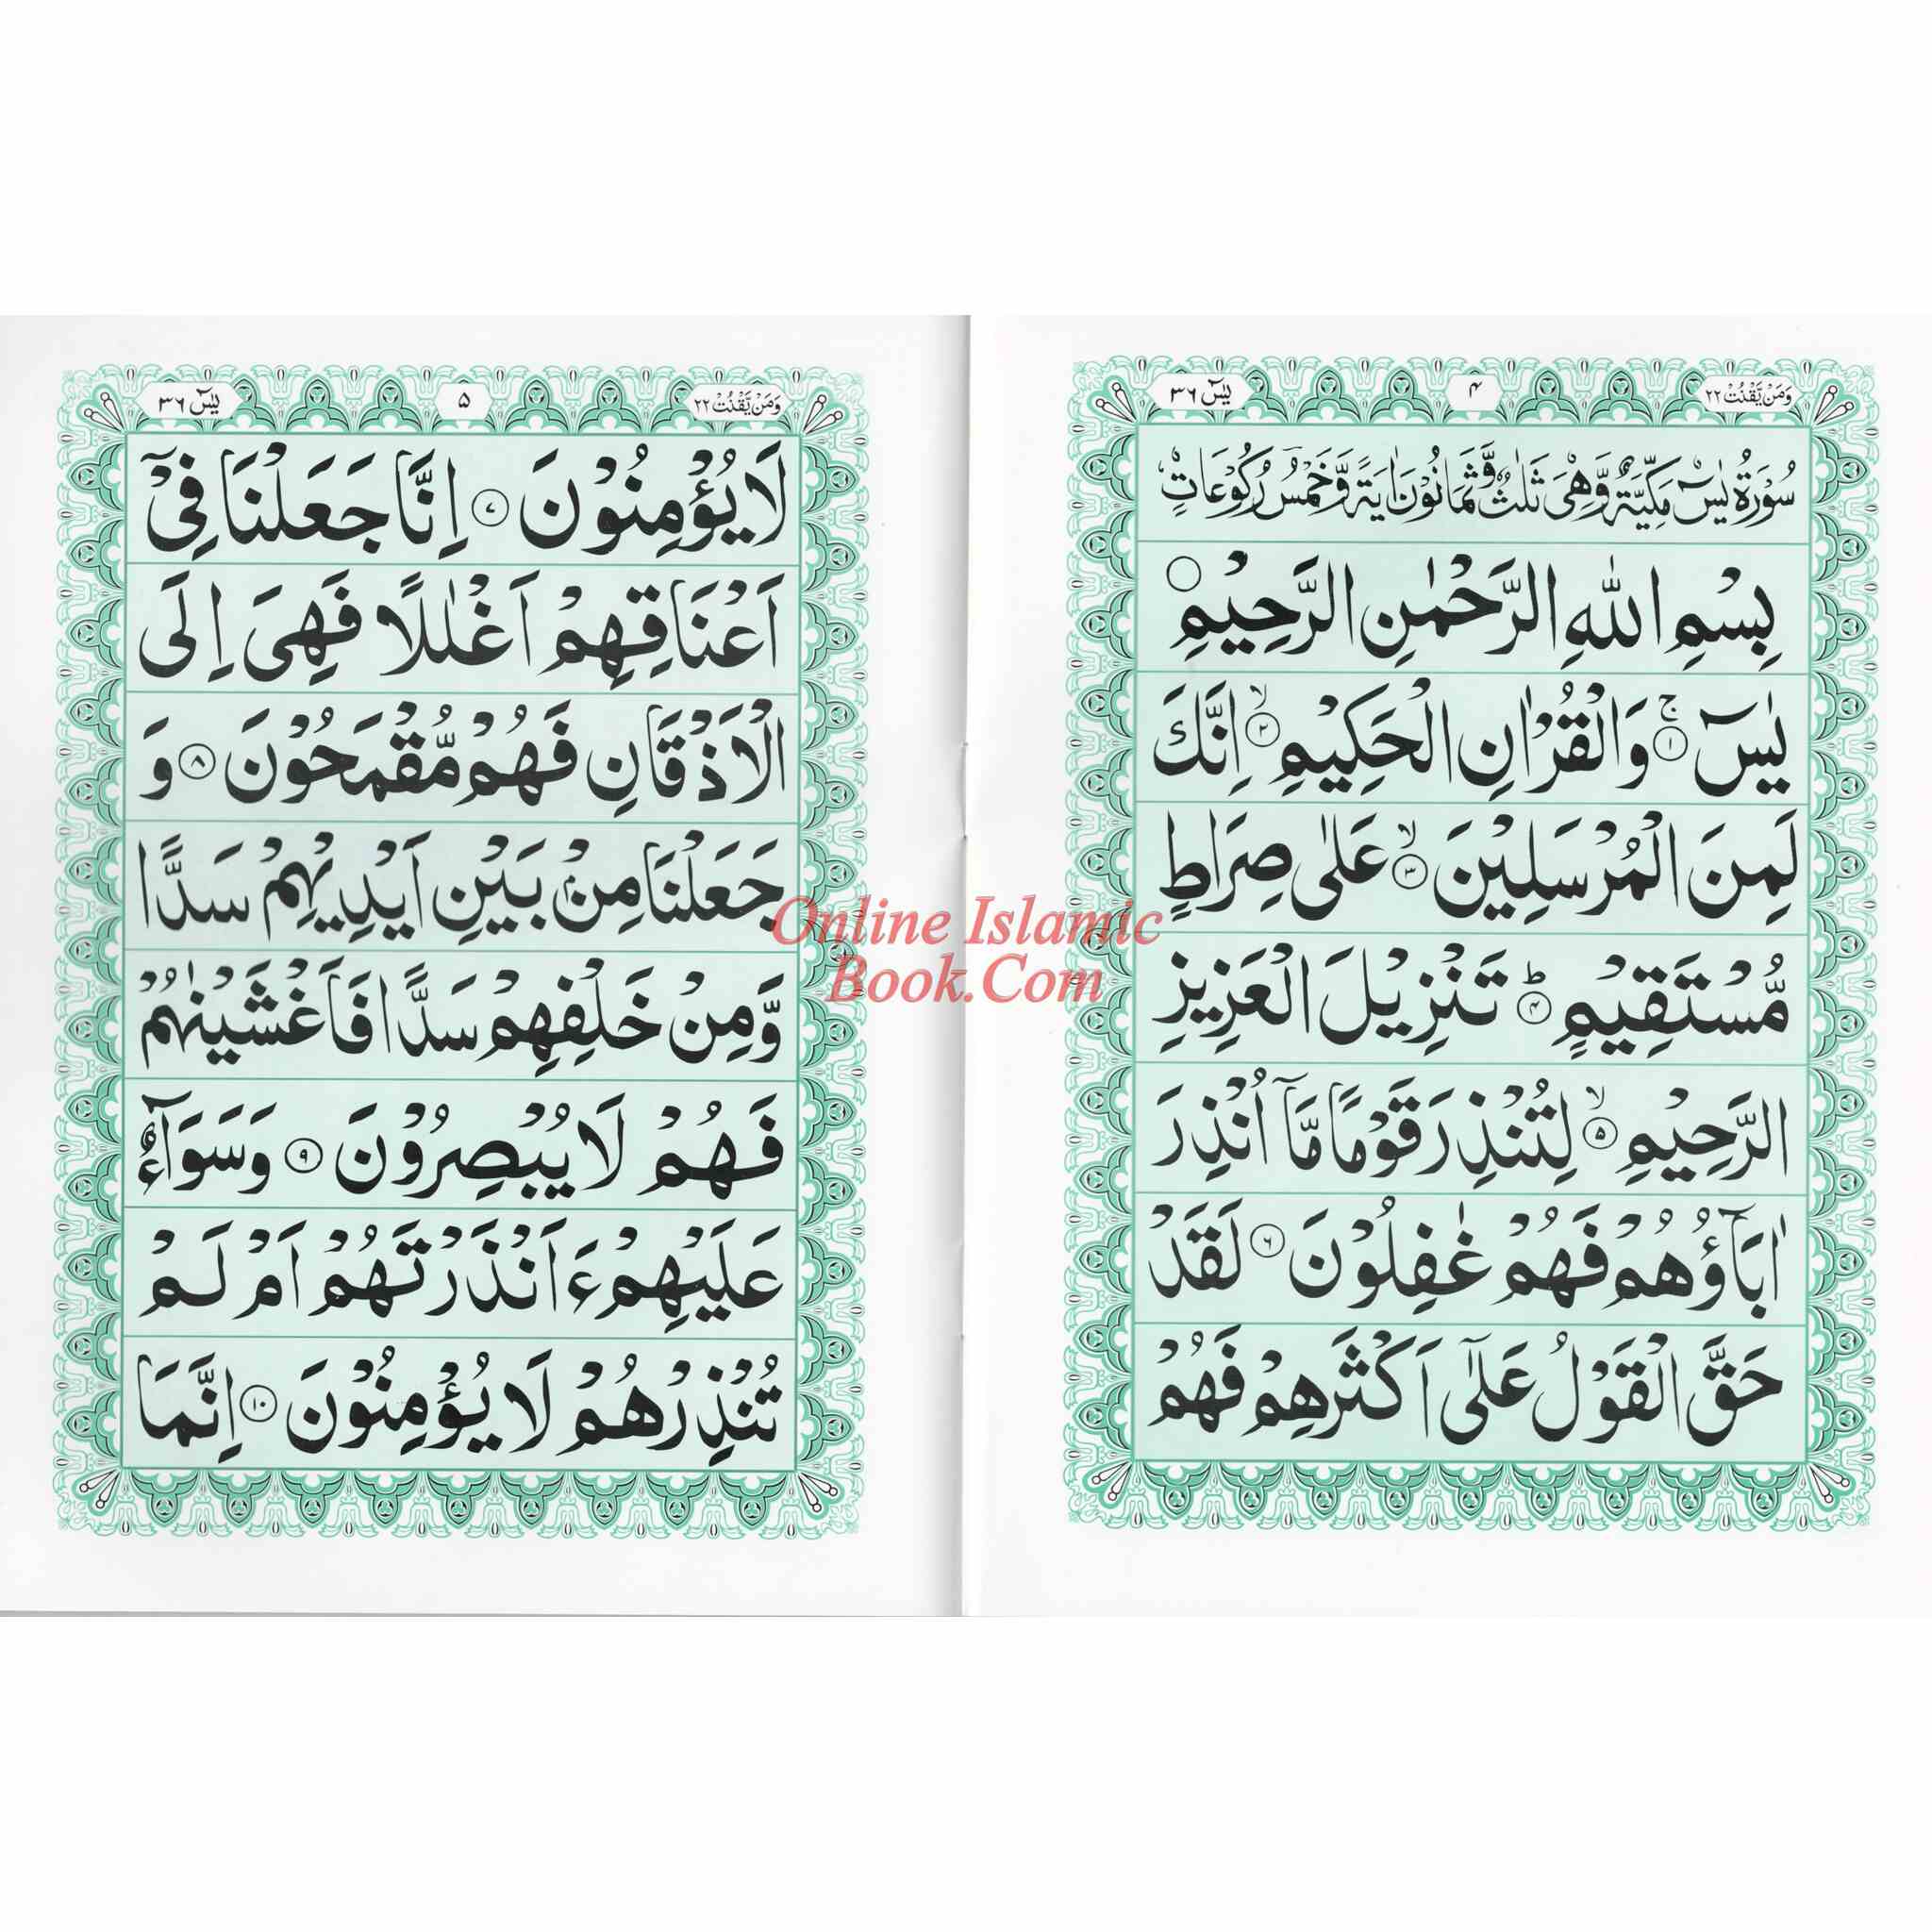 وَمَنْ يَّقْنُتْ ٢٢
۴
يٰسٓ ٣٦
سُوْرَةُ يٰسٓ مَكِّيَّةٌ وَّهِيَ ثَلٰثٌ وَّثَمَانُوْنَ اٰيَةً وَّخَمْسُ رُكُوْعَاتٍ
بِسْمِ اللّٰهِ الرَّحْمٰنِ الرَّحِيْمِ ○
يٰسٓ ۚ‏﴿۱﴾ وَالْقُرْاٰنِ الْحَكِيْمِ ۙ‏﴿۲﴾ اِنَّكَ
لَمِنَ الْمُرْسَلِيْنَ ۙ‏﴿۳﴾ عَلٰى صِرَاطٍ
مُّسْتَقِيْمٍ ؕ‏﴿۴﴾ تَنْزِيْلَ الْعَزِيْزِ
الرَّحِيْمِ ۙ‏﴿۵﴾ لِتُنْذِرَ قَوْمًا مَّاۤ اُنْذِرَ
اٰبَآؤُهُمْ فَهُمْ غٰفِلُوْنَ ﴿۶﴾ لَقَدْ
حَقَّ الْقَوْلُ عَلٰٓى اَكْثَرِهِمْ فَهُمْ
وَمَنْ يَّقْنُتْ ٢٢
۵
يٰسٓ ٣٦
لَا يُؤْمِنُوْنَ ﴿۷﴾ اِنَّا جَعَلْنَا فِيْٓ
اَعْنَاقِهِمْ اَغْلٰلًا فَهِيَ اِلَى
الْاَذْقَانِ فَهُمْ مُّقْمَحُوْنَ ﴿۸﴾ وَ
جَعَلْنَا مِنْۢ بَيْنِ اَيْدِيْهِمْ سَدًّا
وَّمِنْ خَلْفِهِمْ سَدًّا فَاَغْشَيْنٰهُمْ
فَهُمْ لَا يُبْصِرُوْنَ ﴿۹﴾ وَسَوَآءٌ
عَلَيْهِمْ ءَاَنْذَرْتَهُمْ اَمْ لَمْ
تُنْذِرْهُمْ لَا يُؤْمِنُوْنَ ﴿۱۰﴾ اِنَّمَا
Online Islamic
Book.Com